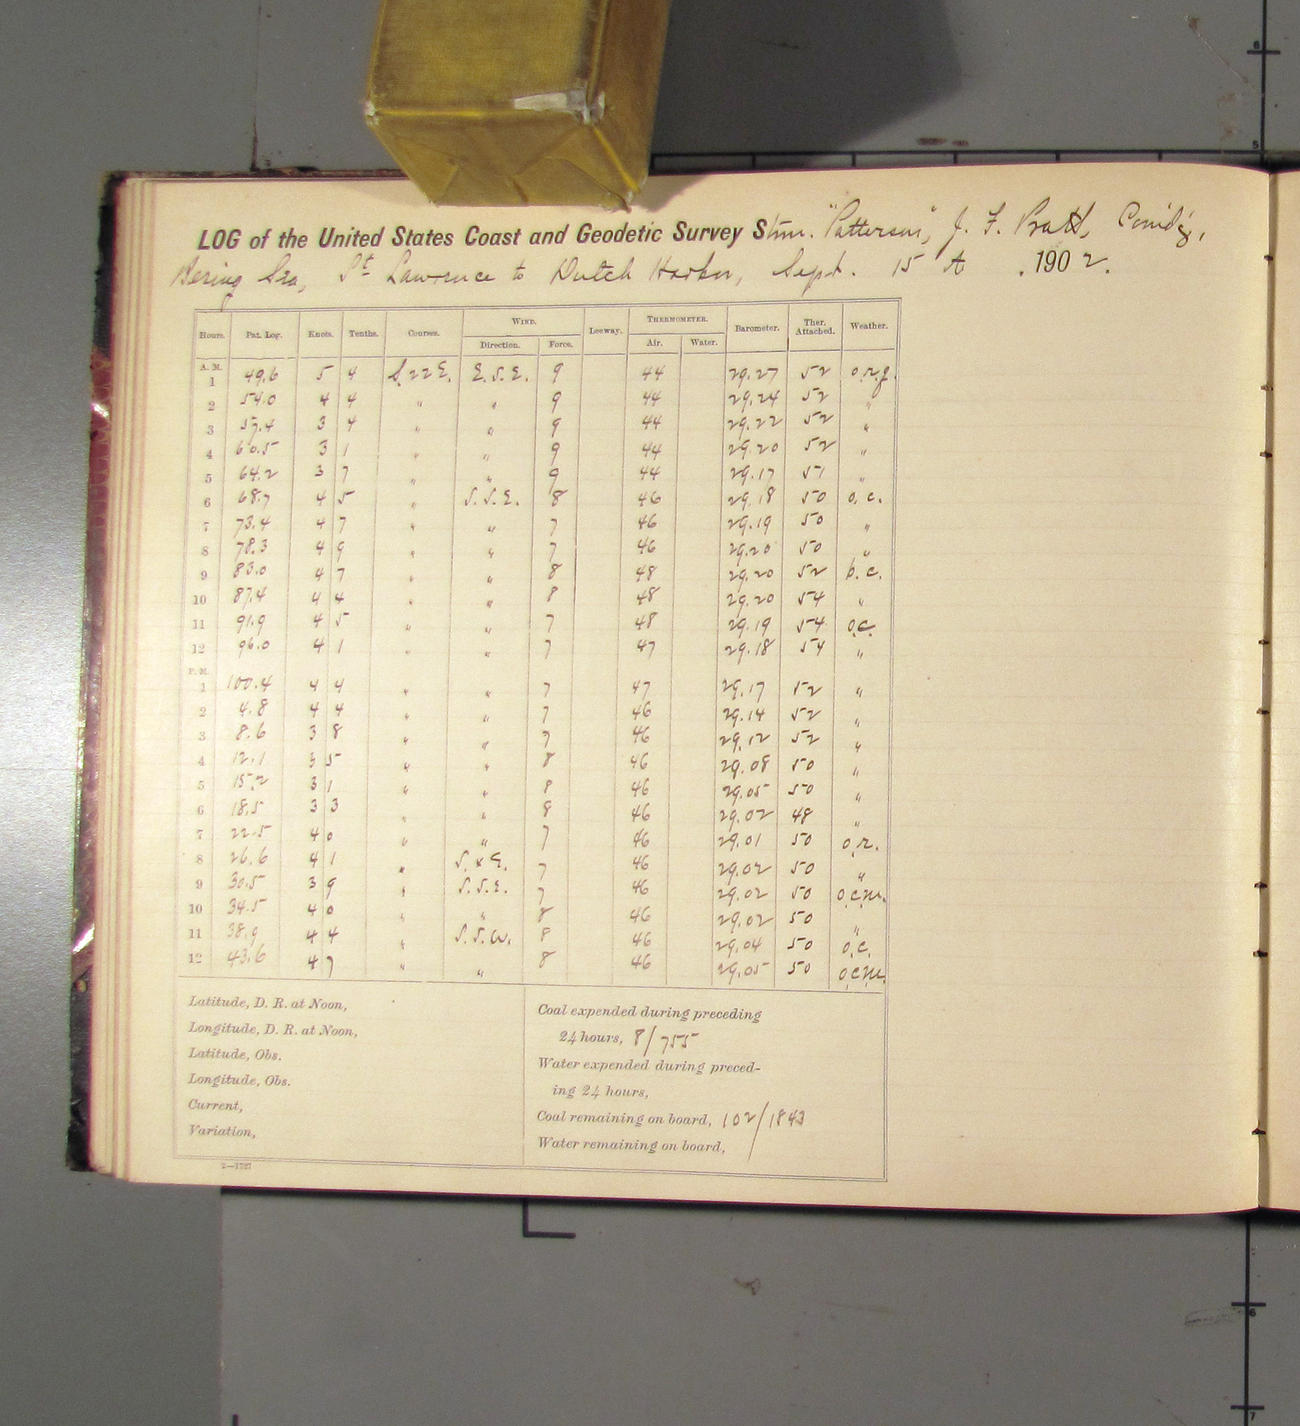 LOG of the United States Coast and Geodetic Survey Stmr. "Patterson", J. F. Pratt, Comd'g,
Bering Sea, St Lawrence to Dutch Harbor, Sept. 15 th, 1902.
Hours. Pat. Log. Knots. Tenths. Courses. WIND. Direction. Force. Leeway. THERMOMETER. Air. Water. Barometer. Ther. Attached. Weather.
A. M.
1 49.6 5 4 S. 22 E. E.S.E. 9 44 29.27 52 o.r.g.
2 54.0 4 4 " " 9 44 29.24 52 "
3 57.4 3 4 " " 9 44 29.22 52 "
4 60.5 3 1 " " 9 44 29.20 52 "
5 64.2 3 7 " " 9 44 29.17 51 "
6 68.7 4 5 " S.S.E. 8 46 29.18 50 o.c.
7 73.4 4 7 " " 7 46 29.19 50 "
8 78.3 4 9 " " 7 46 29.20 50 "
9 83.0 4 7 " " 8 48 29.20 52 b.c.
10 87.4 4 4 " " 8 48 29.20 54 "
11 91.9 4 5 " " 7 48 29.19 54 o.c.
12 96.0 4 1 " " 7 47 29.18 54 "
P. M.
1 100.4 4 4 " " 7 47 29.17 52 "
2 4.8 4 4 " " 7 46 29.14 52 "
3 8.6 3 8 " " 7 46 29.12 52 "
4 12.1 3 5 " " 8 46 29.08 50 "
5 15.2 3 1 " " 8 46 29.05 50 "
6 18.5 3 3 " " 8 46 29.02 48 "
7 22.5 4 0 " " 7 46 29.01 50 o.r.
8 26.6 4 1 " S. x E. 7 46 29.02 50 "
9 30.5 3 9 " S.S.E. 7 46 29.02 50 o.c.m.
10 34.5 4 0 " " 8 46 29.02 50 "
11 38.9 4 4 " S.S.W. 8 46 29.04 50 o.c.
12 43.6 4 7 " " 8 46 29.05 50 o.c.m.
Latitude, D. R. at Noon,
Longitude, D. R. at Noon,
Latitude, Obs.
Longitude, Obs.
Current,
Variation,
Coal expended during preceding
24 hours, 8/755
Water expended during preced-
ing 24 hours,
Coal remaining on board, 102/1843
Water remaining on board,
2—1727
6
5
6
7